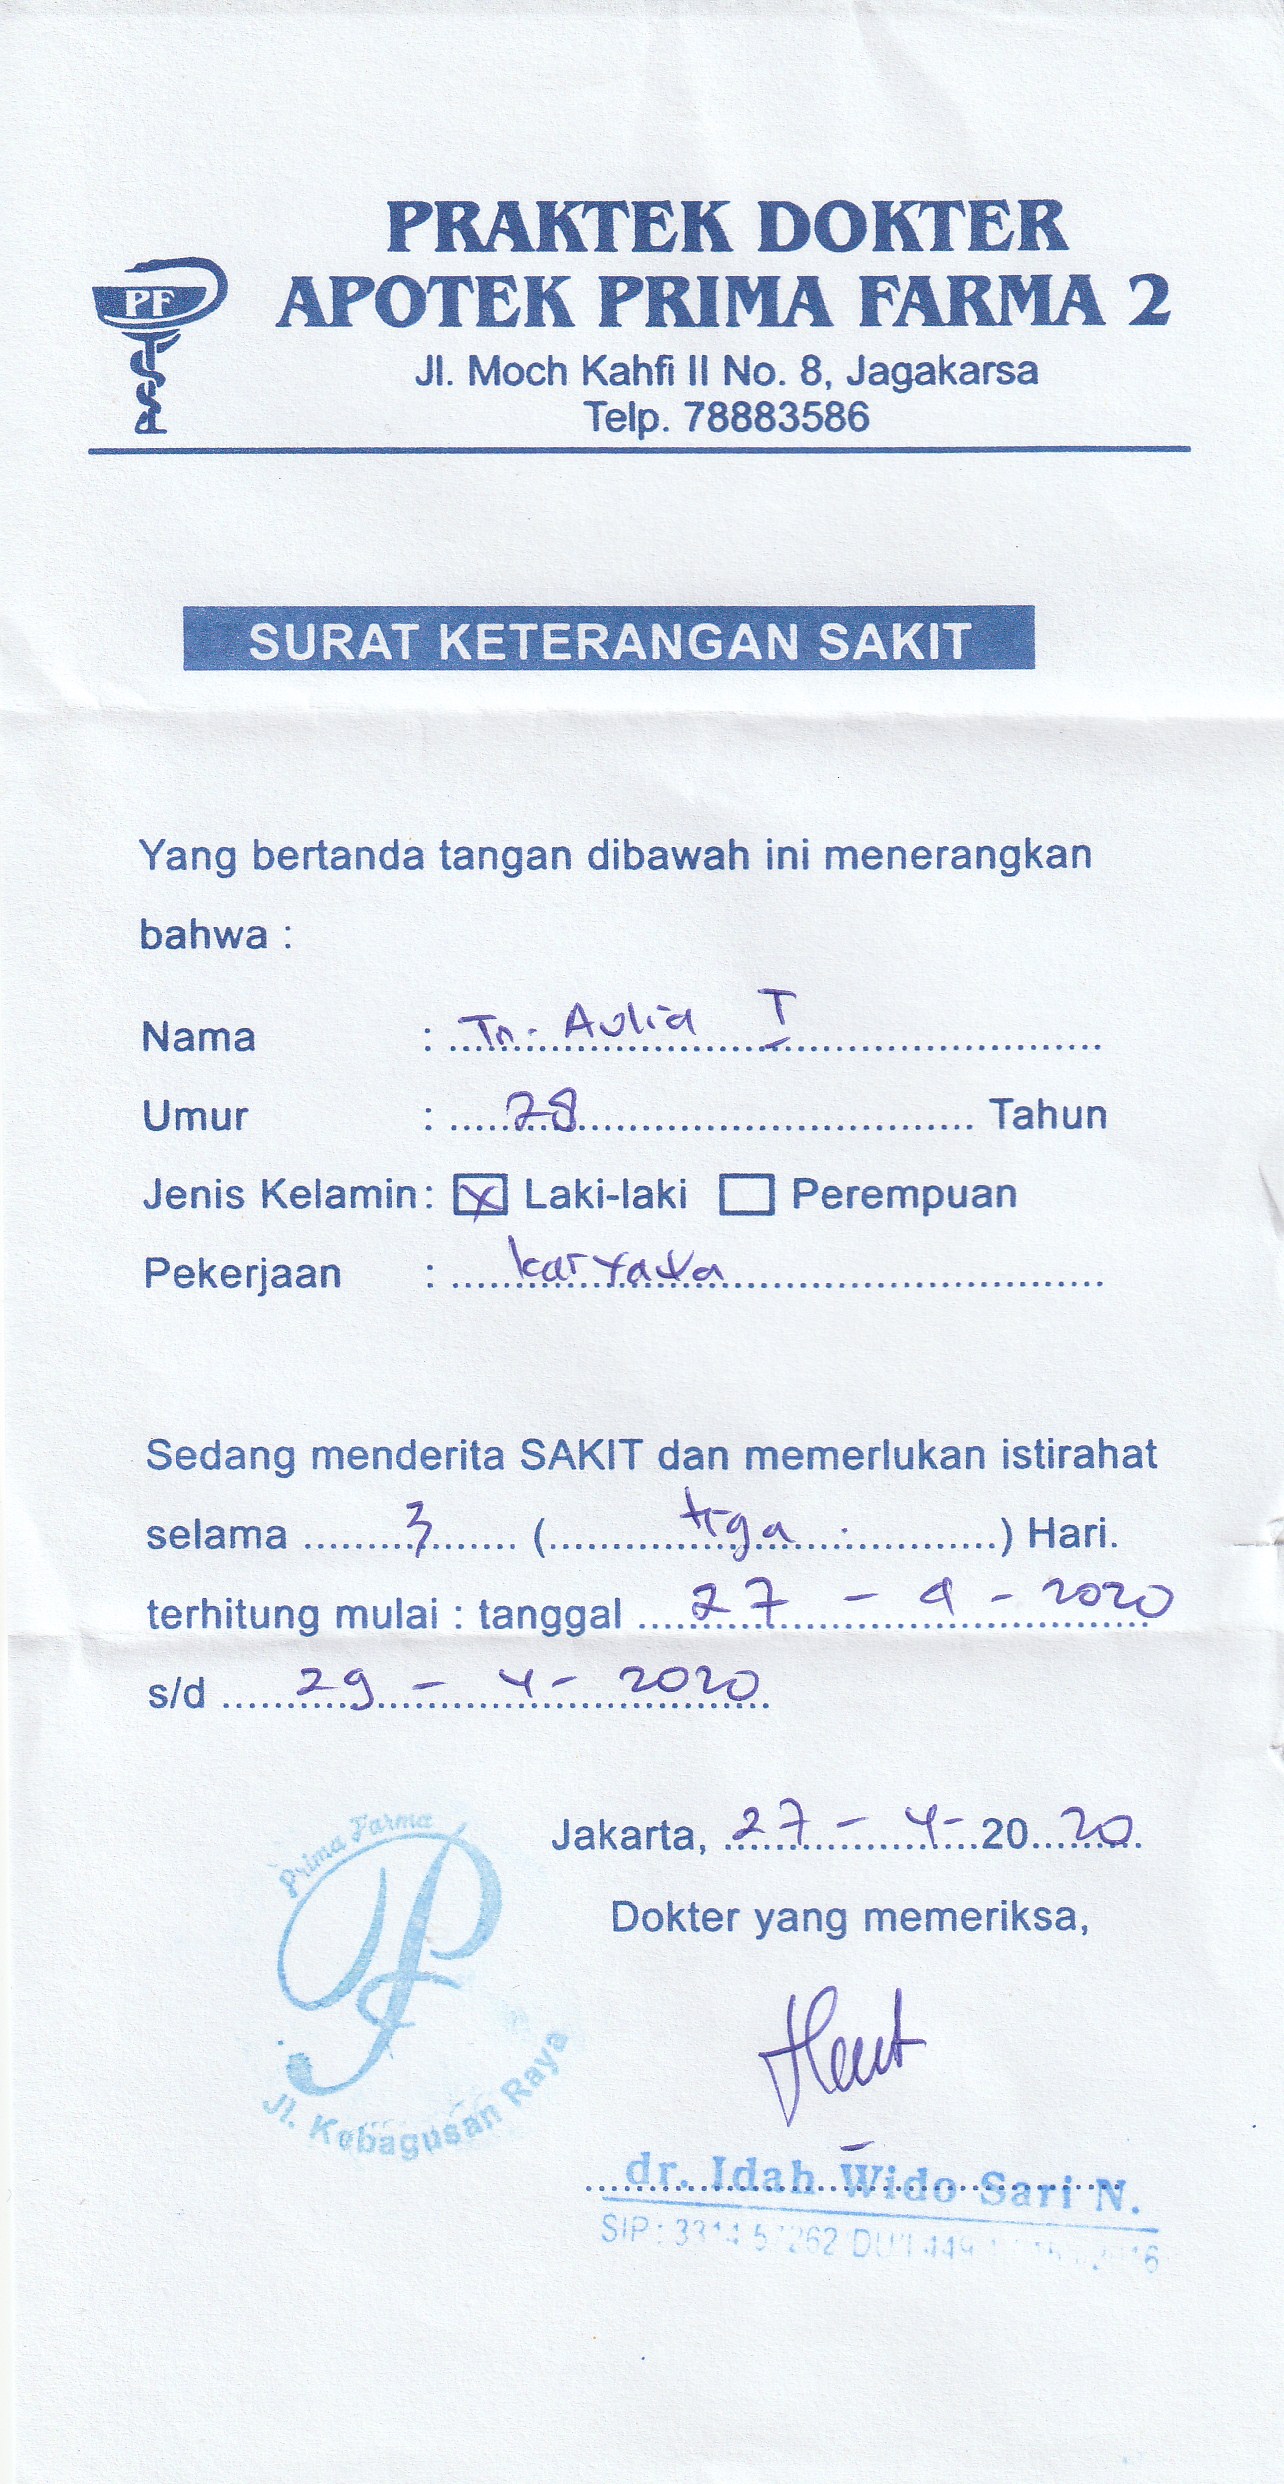 PRAKTEK DOKTER
PF
APOTEK PRIMA FARMA 2
Jl. Moch Kahfi II No. 8, Jagakarsa
Telp. 78883586
SURAT KETERANGAN SAKIT
Yang bertanda tangan dibawah ini menerangkan
bahwa :
Nama : Tn. Aulia I
Umur : 28 Tahun
Jenis Kelamin : Laki-laki Perempuan
Pekerjaan :
Sedang menderita SAKIT dan memerlukan istirahat
selama 3 ( tiga ) Hari.
terhitung mulai : tanggal 27 - 4 - 2020
s/d 29 - 4 - 2020
Jakarta, 27 - 4 - 2020
Dokter yang memeriksa,
Prima Farma
Jl. Kebagusan Raya
dr. Idah Wido Sari N.
SIP :